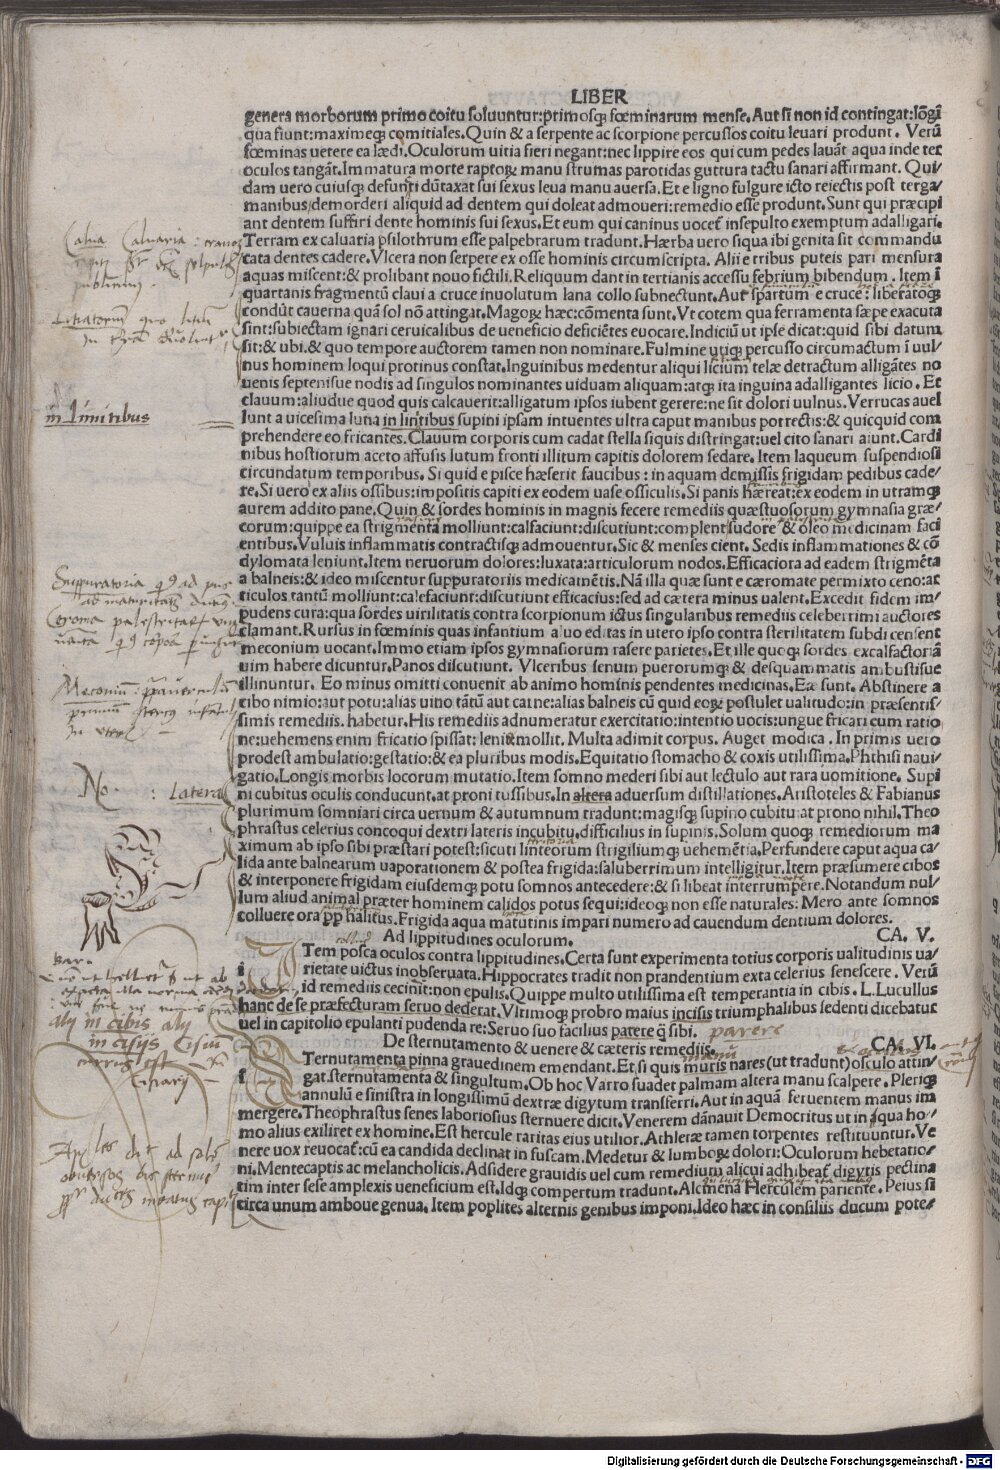 LIBER
genera morborum primo coitu soluuntur:primosq; fœminarum mense. Aut si non id contingat:lōgī
qua fiunt:maximeq; comitiales. Quin & a serpente ac scorpione percussos coitu leuari produnt. Verū
fœminas uetere ea lædi. Oculorum uitia fieri negant:nec lippire eos qui cum pedes lauāt aqua inde ter
oculos tangāt. Immatura morte raptoꝝ manu strumas parotidas guttura tactu sanari affirmant. Qui/
dam uero cuiusq; defuncti dūtaxat sui sexus leua manu auersa. Et e ligno fulgure icto reiectis post terga/
manibus/demorderi aliquid ad dentem qui doleat admoueri:remedio esse produnt. Sunt qui præcipi
ant dentem suffiri dente hominis sui sexus. Et eum qui caninus uocet̄ insepulto exemptum adalligari.
Terram ex caluaria psilothrum esse palpebrarum tradunt. Hærba uero siqua ibi genita sit commandu
cata dentes cadere. Vlcera non serpere ex osse hominis circumscripta. Alii e tribus puteis pari mensura
aquas miscent:& prolibant nouo fictili. Reliquum dant in tertianis accessu febrium bibendum. Item ī
quartanis fragmentū claui a cruce inuolutum lana collo subnectunt. Aut spartum e cruce: liberatoq;
condūt cauerna quā sol nō attingat. Magoꝝ hæc:cōmenta sunt. Vt cotem qua ferramenta sæpe exacuta
sint:subiectam ignari ceruicalibus de ueneficio deficiētes euocare. Indiciū ut ipse dicat:quid sibi datum
sit:& ubi.& quo tempore auctorem tamen non nominare. Fulmine utiq; percusso circumactum ī uul/
nus hominem loqui protinus constat. Inguinibus medentur aliqui licium telæ detractum alligātes no
uenis septenisue nodis ad singulos nominantes uiduam aliquam:atq; ita inguina adalligantes licio. Et
clauum:aliudue quod quis calcauerit:alligatum ipsos iubent gerere:ne sit dolori uulnus. Verrucas auel
lunt a uicesima luna in lintibus supini ipsam intuentes ultra caput manibus porrectis:& quicquid com
prehendere eo fricantes. Clauum corporis cum cadat stella siquis distringat:uel cito sanari aiunt. Cardi
nibus hostiorum aceto affusis lutum fronti illitum capitis dolorem sedare. Item laqueum suspendiosi
circundatum temporibus. Si quid e pisce hæserit faucibus: in aquam demissis frigidam pedibus cade/
re. Si uero ex aliis ossibus:impositis capiti ex eodem uase ossiculis. Si panis hæreat:ex eodem in utramq;
aurem addito pane. Quin & sordes hominis in magnis fecere remediis quæstuosorum gymnasia græ/
corum:quippe ea strigmenta molliunt:calfaciunt:discutiunt:complent sudore & oleo medicinam faci
entibus. Vuluis inflammatis contractisq; admouentur. Sic & menses cient. Sedis inflammationes & cō
dylomata leniunt. Item neruorum dolores:luxata:articulorum nodos. Efficaciora ad eadem strigmēta
a balneis:& ideo miscentur suppuratoriis medicamētis. Nā illa quæ sunt e cæromate permixto ceno:ar
ticulos tantū molliunt:calefaciunt:discutiunt efficacius:sed ad cætera minus ualent. Excedit fidem im/
pudens cura:qua sordes uirilitatis contra scorpionum ictus singularibus remediis celeberrimi auctores
clamant. Rursus in fœminis quas infantium aluo editas in utero ipso contra sterilitatem subdi censent
meconium uocant. Immo etiam ipsos gymnasiorum rasere parietes. Et ille quoq; sordes excalfactoriā
uim habere dicuntur. Panos discutiunt. Vlceribus senum puerorumq; & desquammatis ambustisue
illinuntur. Eo minus omitti conuenit ab animo hominis pendentes medicinas. Eæ sunt. Abstinere a
cibo nimio:aut potu:alias uino tātū aut carne:alias balneis cū quid eoꝝ postulet ualitudo:in præsentis/
simis remediis. habetur. His remediis adnumeratur exercitatio:intentio uocis:ungue fricari cum ratio
ne:uehemens enim fricatio spissat: lenis mollit. Multa adimit corpus. Auget modica. In primis uero
prodest ambulatio:gestatio:& ea pluribus modis. Equitatio stomacho & coxis utilissima. Phthisi naui/
gatio. Longis morbis locorum mutatio. Item somno mederi sibi aut lectulo aut rara uomitione. Supi
ni cubitus oculis conducunt.at proni tussibus. In altera aduersum distillationes. Aristoteles & Fabianus
plurimum somniari circa uernum & autumnum tradunt:magisq; supino cubitu:at prono nihil. Theo
phrastus celerius concoqui dextri lateris incubitu.difficilius in supinis. Solum quoq; remediorum ma
ximum ab ipso sibi præstari potest:sicuti linteorum strigiliumq; uehemētia. Perfundere caput aqua ca/
lida ante balnearum uaporationem & postea frigida:saluberrimum intelligitur. Item præsumere cibos
& interponere frigidam eiusdemq; potu somnos antecedere:& si libeat interrumpere. Notandum nul/
lum aliud animal præter hominem calidos potus sequi:ideoq; non esse naturales: Mero ante somnos
colluere ora pp halitus. Frigida aqua matutinis impari numero ad cauendum dentium dolores.
Ad lippitudines oculorum. CA. V.
ITem posca oculos contra lippitudines. Certa sunt experimenta totius corporis ualitudinis ua/
rietate uictus inobseruata. Hippocrates tradit non prandentium exta celerius senescere. Verū
id remediis cecinit:non epulis. Quippe multo utilissima est temperantia in cibis. L. Lucullus
hanc de se præfecturam seruo dederat. Vltimoq; probro maius incisis triumphalibus sedenti dicebatur
uel in capitolio epulanti pudenda re:Seruo suo facilius patere q̄ sibi. parere
De sternutamento & uenere & cæteris remediis. CA. VI.
STernutamenta pinna grauedinem emendant. Et si quis muris nares (ut tradunt) osculo attin/
gat.sternutamenta & singultum. Ob hoc Varro suadet palmam altera manu scalpere. Pleriq;
annulū e sinistra in longissimū dextræ digytum transferri. Aut in aquā feruentem manus im
mergere. Theophrastus senes laboriosius sternuere dicit. Venerem dānauit Democritus ut in qua ho/
mo alius exiliret ex homine. Est hercule raritas eius utilior. Athletæ tamen torpentes restituuntur. Ve
nere uox reuocat̄:cū ea candida declinat in fuscam. Medetur & lumboꝝ dolori:Oculorum hebetatio/
ni. Mentecaptis ac melancholicis. Adsidere grauidis uel cum remedium alicui adhibeat̄ digytis pectina
tim inter sese amplexis ueneficium est. Idq; compertum tradunt. Alcmena Herculem pariente. Peius si
circa unum amboue genua. Item poplites alternis genibus imponi. Ideo hæc in consiliis ducum pote/
Calua Caluaria
in liminibus
Suppuratoria
Meconiū
No. : Latera
aly in cibis aly
in cisijs
Digitalisierung gefördert durch die Deutsche Forschungsgemeinschaft - DFG